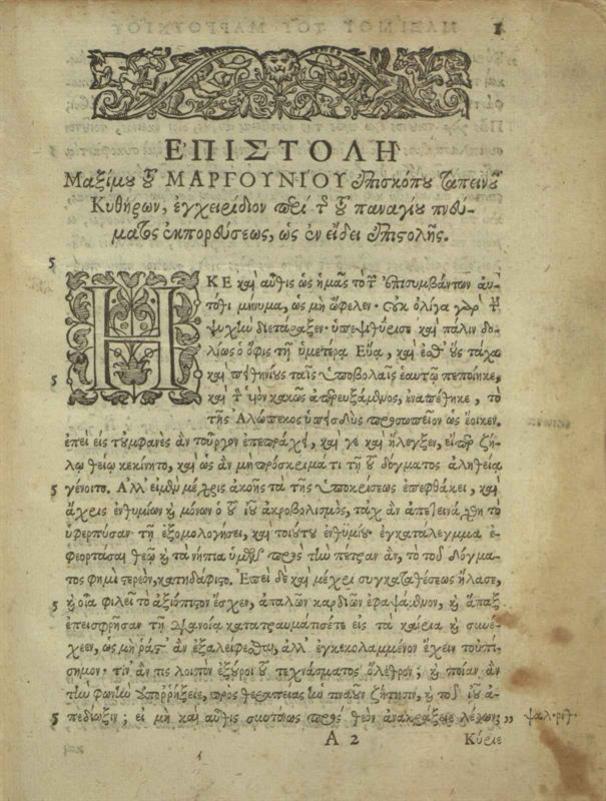 1
ΕΠΙΣΤΟΛΗ
Μαξίμου τοῦ ΜΑΡΓΟΥΝΙΟΥ Ἐπισκόπου ταπεινοῦ
Κυθήρων, ἐγχειρίδιον περὶ τῆς τοῦ παναγίου πνεύ-
ματος ἐκπορεύσεως, ὡς ἐν εἴδει ἐπιστολῆς.
5
ΗΚΕ καὶ αὖθις ὡς ἡμᾶς τὸ τῶν ἐπισυμβάντων αὐ-
τόθι μήνυμα, ὡς μὴ ὤφελεν· οὐκ ὀλίγα γὰρ τὴν
ψυχὴν διετάραξεν· ὑπεψιθύρισε καὶ πάλιν δο-
λίως ὁ ὄφις τῇ ὑμετέρᾳ Εὔα, καὶ ἔσθ' οὓς τάχα
5 καὶ πιθηνίους ταῖς ὑποβολαῖς ἑαυτῷ πεποίηκε,
καὶ τὸν κακῶς ἐναπέθηκε, τὸ
τῆς Ἀλώπεκος ὑπεισδὺς προσωπεῖον ὡς ἔοικεν.
ἐπεὶ εἰς τὐμφανὲς ἂν τοὖργον ἐπεπράχει, καί γε καὶ ἤλεγξεν, εἴπερ ζή-
λῳ θείῳ κεκίνητο, καὶ ὡς ἂν μὴ πρόσκριμα τι τῇ τοῦ δόγματος ἀληθείᾳ
5 γένοιτο. Ἀλλ' εἰ μὲν μέχρις ἀκοῆς τὰ τῆς ὑποκρίσεως ἐπεφθάκει, καὶ
ἄχρις ἐνθυμίων καὶ μόνων ὁ τοῦ ἰοῦ ἀκροβολισμὸς, τάχ' ἂν
ὑφερπύσαν τῇ ἐξομολογήσει, καὶ τοιούτου ἐνθυμίου ἐγκατάλειμμα ἐ-
φεορτάσαι θεῷ καὶ τὰ νήπια πρὸς τὴν πέτραν ἂν, τὸ τοῦ δόγμα-
τος φημὶ στερεὸν, κατηδάφιστο. Ἐπεὶ δὲ καὶ μέχρι συγκαταθέσεως ἤλασε,
5 καὶ οἷα φιλεῖ τὸ ἀξιόπιστον ἔσχεν, ἁπαλῶν καρδιῶν ἐφαψάμενον, καὶ ἅπαξ
ἐπεισφρῆσαν τῇ διανοίᾳ εἰς τὰ καίρια καὶ συνέ-
χεεν, ὡς μὴ ῥᾷστ' ἂν ἐξαλείφεσθαι, ἀλλ' ἐγκεκολαμμένον ἔχειν τοὐπί-
σημον· τίν' ἄν τις λοιπὸν ἐξεύροι τοῦ τεχνάσματος ὄλεθρον; καὶ ποίαν ἂν
τὴν φωνὴν ὑπορρήξειε, πρὸς θεραπείας ζήτησιν, καὶ τοῦ ἰοῦ ἀ-
5 πεδίωξιν; εἰ μὴ καὶ αὖθις πρὸς θεὸν ἀνακράξειε λέγων; „ ψαλ.
A 2 Κύριε